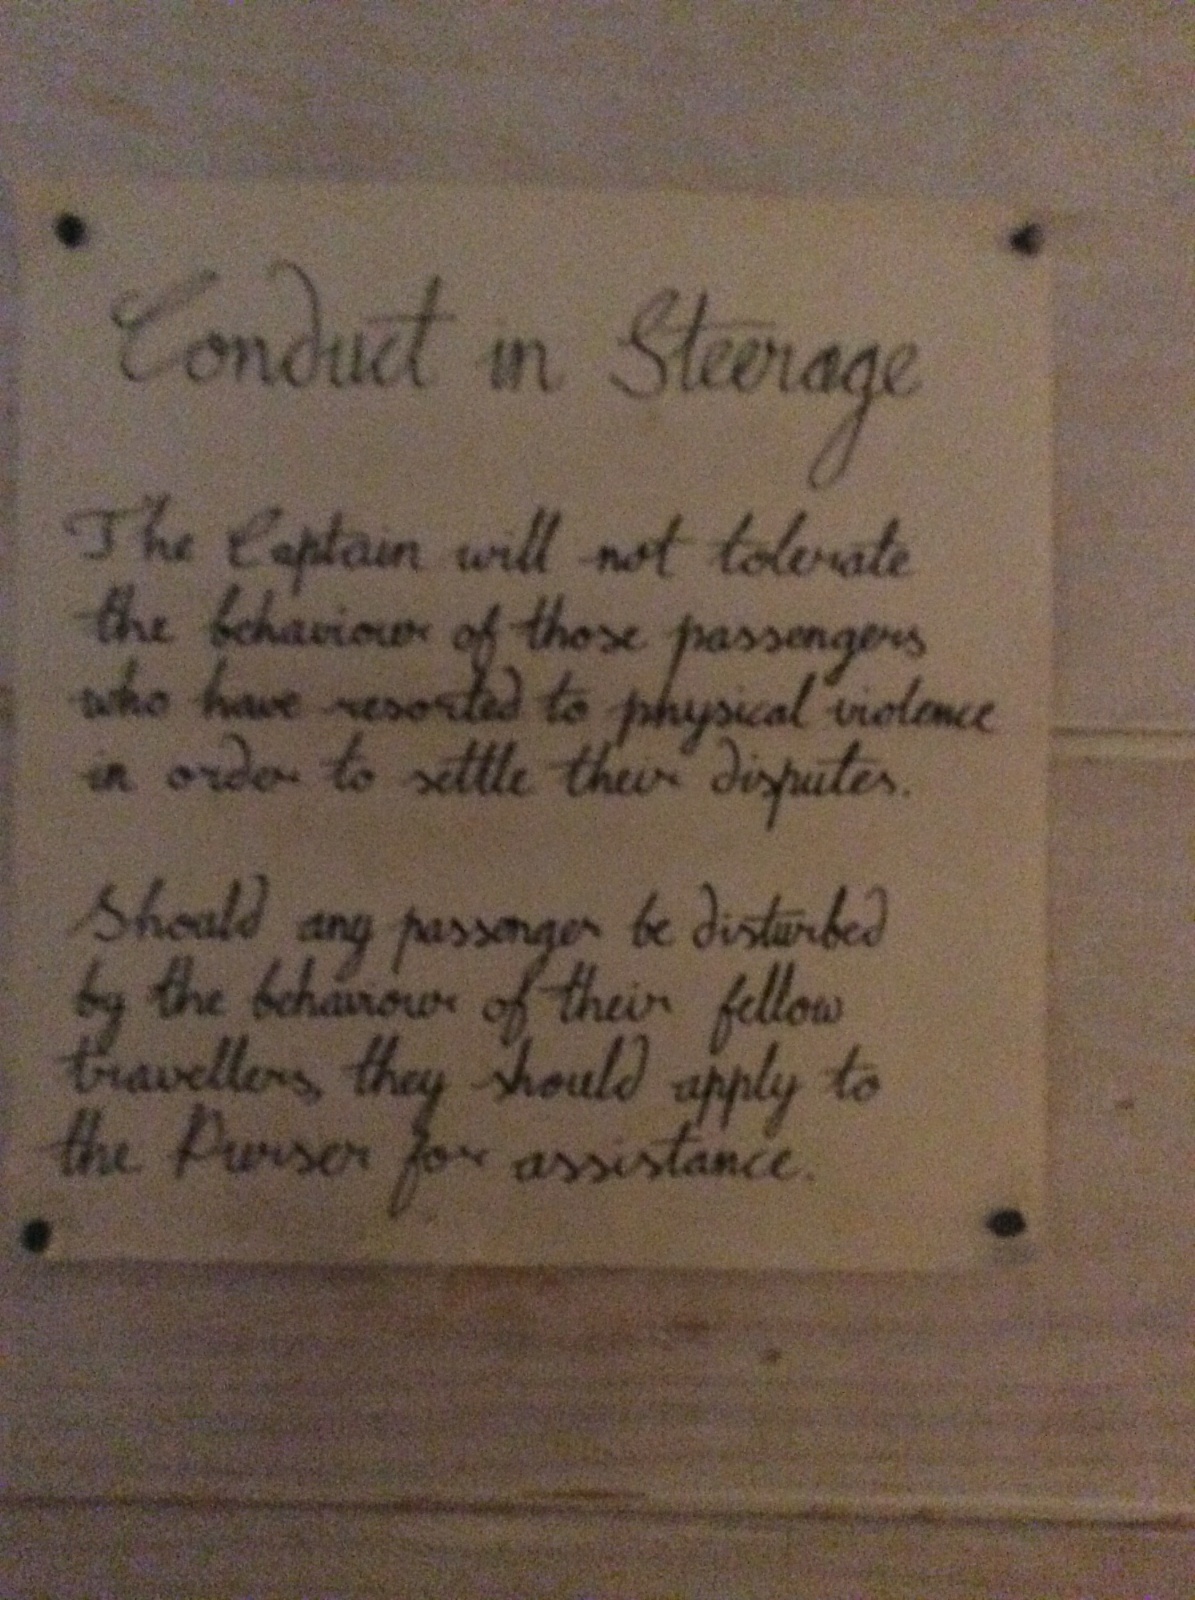 Conduct in Steerage
The Captain will not tolerate
the behaviour of those passengers
who have resorted to physical violence
in order to settle their disputes.
Should any passenger be disturbed
by the behaviour of their fellow
travellers, they should apply to
the Purser for assistance.